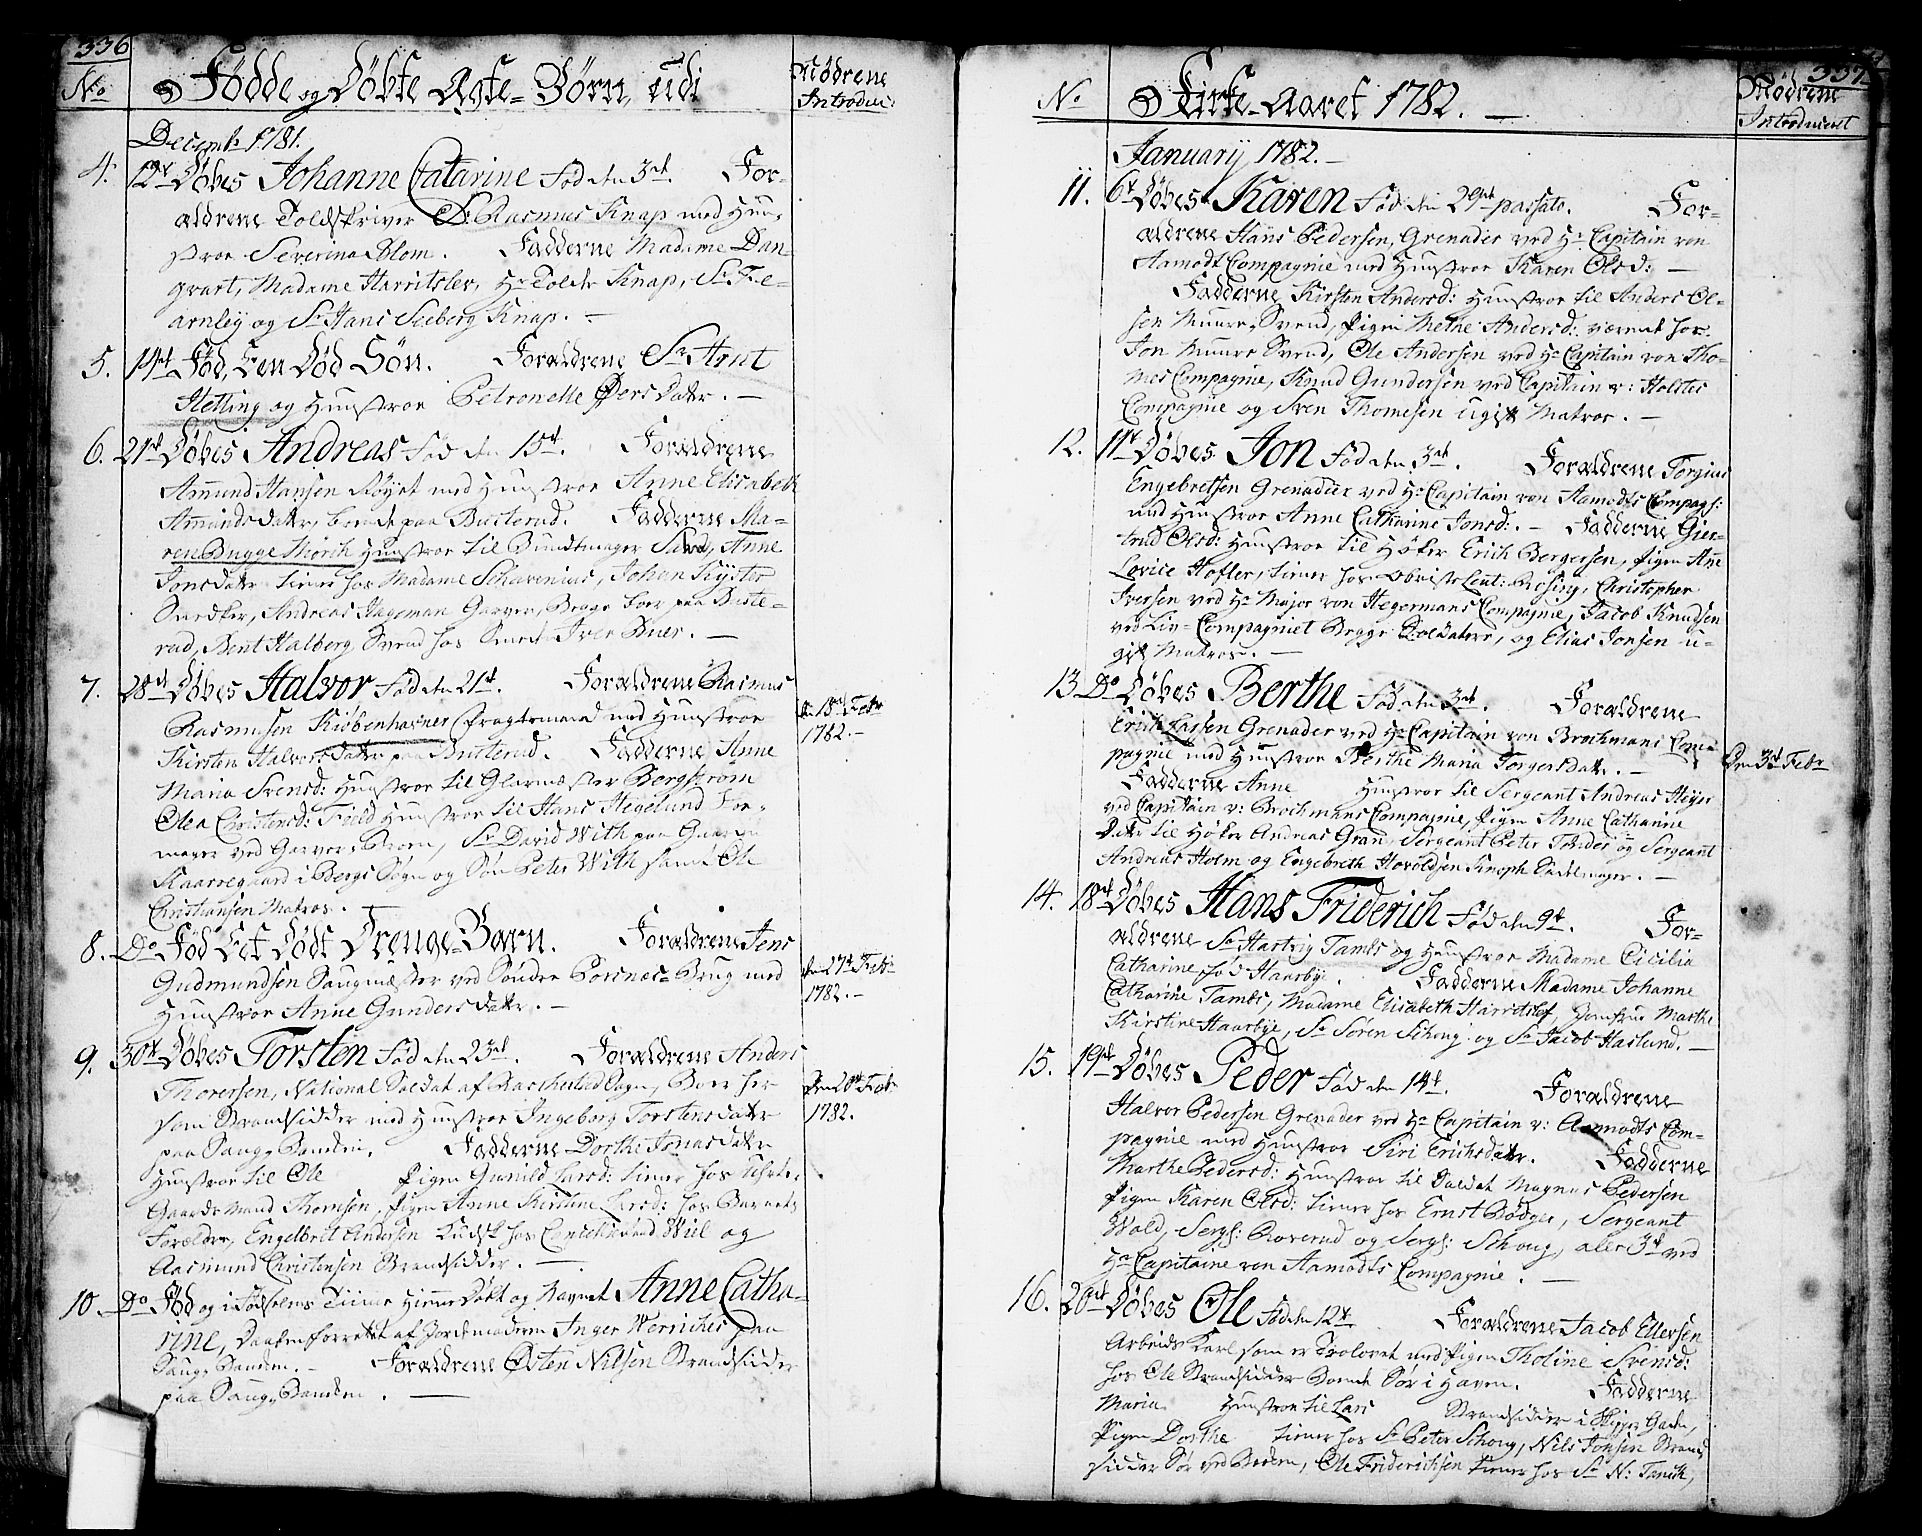 336
No
Fødde og Døbte Ægte-Børn, udi
Mødrene
Introduc:
Decemb: 1781.
4. 12t Døbes Johanne Catarine Fød den 3de. For-
ældrene Toldskriver Sr Rasmus Knap med Huu-
stroe Severina Blom. Fadderne Madame Dan-
qvart, Madame Harritslev, Hr Tolder Knap, Sr Fe-
arnley og Sr Jans Seeberg Knap. —
5. 14de Fød, Een Død Søn. Forældrene Sr Arnt
Hetting og Huustroe Petronelle Peersdatr. —
6. 21de Døbes Andreas Fød den 15de. Forældrene
Amund Hansen Røyet med Huustroe Anne Elisabeth
Amundsdatr, boende paa Busterud. Fadderne Ma-
ren Bugge Mørch Huustroe til Bundtmager Lund, Anne
Jonsdatr tiener hos Madame Schavenius, Johan Kyster
Snedker, Andreas Hageman Garver, Begge boer paa Buste-
rud, Bent Halberg Svend hos Smed Iver Buer. —
7. 28de Døbes Halvor Fød den 21de. Forældrene Rasmus
Rasmusen Kiøbenhavner Fragtemand med Huustroe
Kirsten Halvorsdatr paa Busterud. Fadderne Anne
Maria Svensd: Huustroe til Glarmæster Bergstrøm
Olea Christensd: Field Huustroe til Hans Hegelund For-
mager ved Garver-Broen, Sr David With paa
Kaarregaard i Bergs Sogn og Søn Peter With samt Ole
Christiansen Matros. —
den 18de Febr
1782. —
8. Do Fød Eet Dødt Drenge-Barn. Forældrene Jens
Gudmundsen Saugmæster ved Søndre Porsnes-Brug med
Huustroe Anne Gundersdatr. —
den 27de Febr
1782. —
9. 30te Døbes Torsten Fød den 23de. Forældrene Anders
Thoresen, National Soldat af Raschestad Sogn, Boer her
som Strandsidder med Huustroe Ingeborg Torstensdatr
paa Saug-Banden. Fadderne Dorthe Jonasdatr
Huustroe til Ole Pigen Gunild Larsd: tiener hos
Gaardmand Thomsen, Pigen Anne Kirstine Larsd: hos Barnets
Forældre, Engelbret Andersen Kudsk hos Wiel og
Aasmund Christensen Strandsidder. —
Den 20de Febr
1782.
10. Do Fød og i Fødselens Time Hiemme Døbt og Navnet Anne Catha-
rine, Daaben forrettet af Jordemoderen Inger Werniches paa
Saug-Banden. — Forældrene Østen Nilsen Strandsidder
paa Saug-Banden. —
337
No
Kirke-Aaret 1782. —
Mødrene
Introduceret
January 1782. —
11. 6te Døbes Karen Fød den 29de passato. For-
ældrene Hans Pedersen, Grenader ved Hr Capitain von
Aamodt Compagnie med Huustroe Karen Olsd: —
Fadderne Kirsten Andersd: Huustroe til Anders Ol-
sen Muure-Svend, Pigen Methe Andersd: værende hos
Jon Muure Svend, Ole Andersen ved Hr Capitain von Tho-
mes Compagnie, Knud Gundersen ved Capitain v: Holstes
Compagnie og Sven Thomesen ugift Matros. —
12. 11te Døbes Jon Fød den 3de. Forældrene Torgius
Engebretsen Grenader ved Hr Capitain von Aamodts Compag:
med Huustroe Anne Catharine Jonsd: — Fadderne Gier-
trud Olsd: Huustroe til Høker Erich Børgersen, Pigen Ane
Lovise Høfler, tiener hos Obriste Leut: Rosing, Christopher
Iversen ved Hr Major von Hegermans Compagnie, Jacob Knudsen
ved Liv-Compagniet Begge Soldatere, og Elias Jonsen u-
gift Matros. —
13. Do Døbes Berthe Fød den 3de. Forældrene
Erich Larsen Grenader ved Hr Capitain von Brochmans Com-
pagnie med Huustroe Berthe Maria Torgersdatr. —
Fadderne Anne Huustroe til Sergeant Andreas Heyer
ved Capitain v: Brochmans Compagnie, Pigen Anne Cathrine
Datr til Høker Andreas Gran, Sergeant Peter Tønder og Sergeant
Andreas Holm og Engebreth Haroldsen Knoph Sadelmager. —
Den 3de Febr
14. 18de Døbes Hans Friderich Fød den 9de. For-
ældrene Sr Hartvig Tambs og Huustroe Madame Cicilia
Catharine, fød Haarbye. Fadderne Madame Johanne
Catharine Tambs, Madame Elisabeth Harritslef, Jomfrue Marthe
Kirstine Haarbye, Sr Søren Schoug og Sr Jacob Haslund. —
15. 19de Døbes Peder Fød den 14de. Forældrene
Halvor Pedersen Grenader ved Hr Capitain v: Aamodts Com-
pagnie med Huustroe Siri Erichsdatr. Fadderne
Marthe Pedersd: Huustroe til Soldat Magnus Pedersen
Pigen Karen Olsd: tiener hos Ernst Bødger, Sergeant
Wold, Serg: Roverud og Serg: Schoug, alle 3de ved
Hr Capitaine von Aamodts Compagnie. —
16. 20de Døbes Ole Fød den 12te. Forældrene Jacob Ellersen
Arbeids Karl som er Troloved med Pigen Tholine Svensd:
hos Ole Strandsidder Boende Sør i Haven. Fadderne
Maria Huustroe til Lars Strandsidder i Skipper Gaden,
Pigen Dorthe tiener hos Sr Peter Schoug, Nils Jonsen Strand-
sidder Sør ved Broen, Ole Friderichsen tiener hos Sr N: Tank,